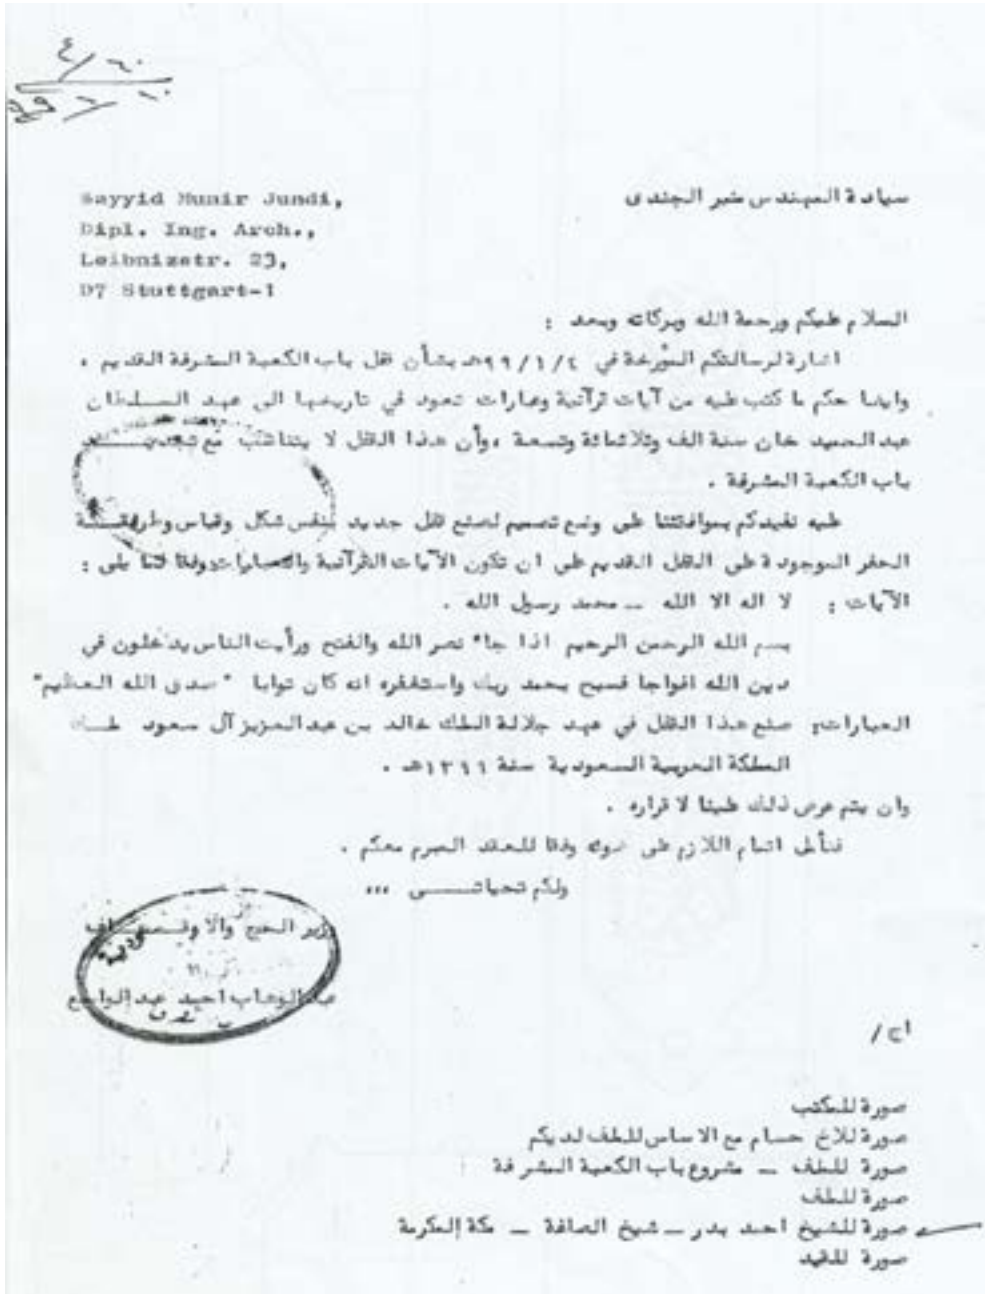 ٤/٦٠
سيادة المهندس منير الجندى
Sayyid Munir Jundi,
Dipl. Ing. Arch.,
Leibnizstr. 23,
D7 Stuttgart-1
السلام عليكم ورحمة الله وبركاته وبعد :
اشارة لرسالتكم المؤرخة في ٩٩/١/٤هـ بشأن قفل باب الكعبة المشرفة القديم ،
وايضا حكم ما كتب عليه من آيات قرآنية وعبارات تعود في تاريخها الى عهد السلطان
عبد الحميد خان سنة الف وثلاثمائة وتسعة ،وأن هذا القفل لا يتناسب مع تجديد
باب الكعبة المشرفة .
عليه نفيدكم بموافقتنا على وضع تصميم لصنع قفل جديد بنفس شكل وقياس وطريقة
الحفر الموجودة على القفل القديم على ان تكون الآيات القرآنية والعبارات وفقا لما يلى :
الآيات : لا اله الا الله ــ محمد رسول الله .
بسم الله الرحمن الرحيم اذا جاء نصر الله والفتح ورأيت الناس يدخلون في
دين الله افواجا فسبح بحمد ربك واستغفره انه كان توابا " صدق الله العظيم"
العبارات: صنع هذا القفل في عهد جلالة الملك خالد بن عبد العزيز آل سعود ملك
المملكة العربية السعودية سنة ١٣٩٩هـ .
وان يتم عرض ذلك علينا لا قراره .
فنأمل اتمام اللازم على ضوئه وفقا للعقد المبرم معكم .
ولكم تحياتــــى ،،،
وزير الحج والاوقـــاف
عبد الوهاب احمد عبد الواسع
اح/
صورة للمكتب
صورة للاخ حسام مع الاساس للملف لديكم
صورة للملف ــ مشروع باب الكعبة المشرفة
صورة للملف
صورة للشيخ احمد بدر ــ شيخ الصاغة ــ مكة المكرمة
صورة للقيد